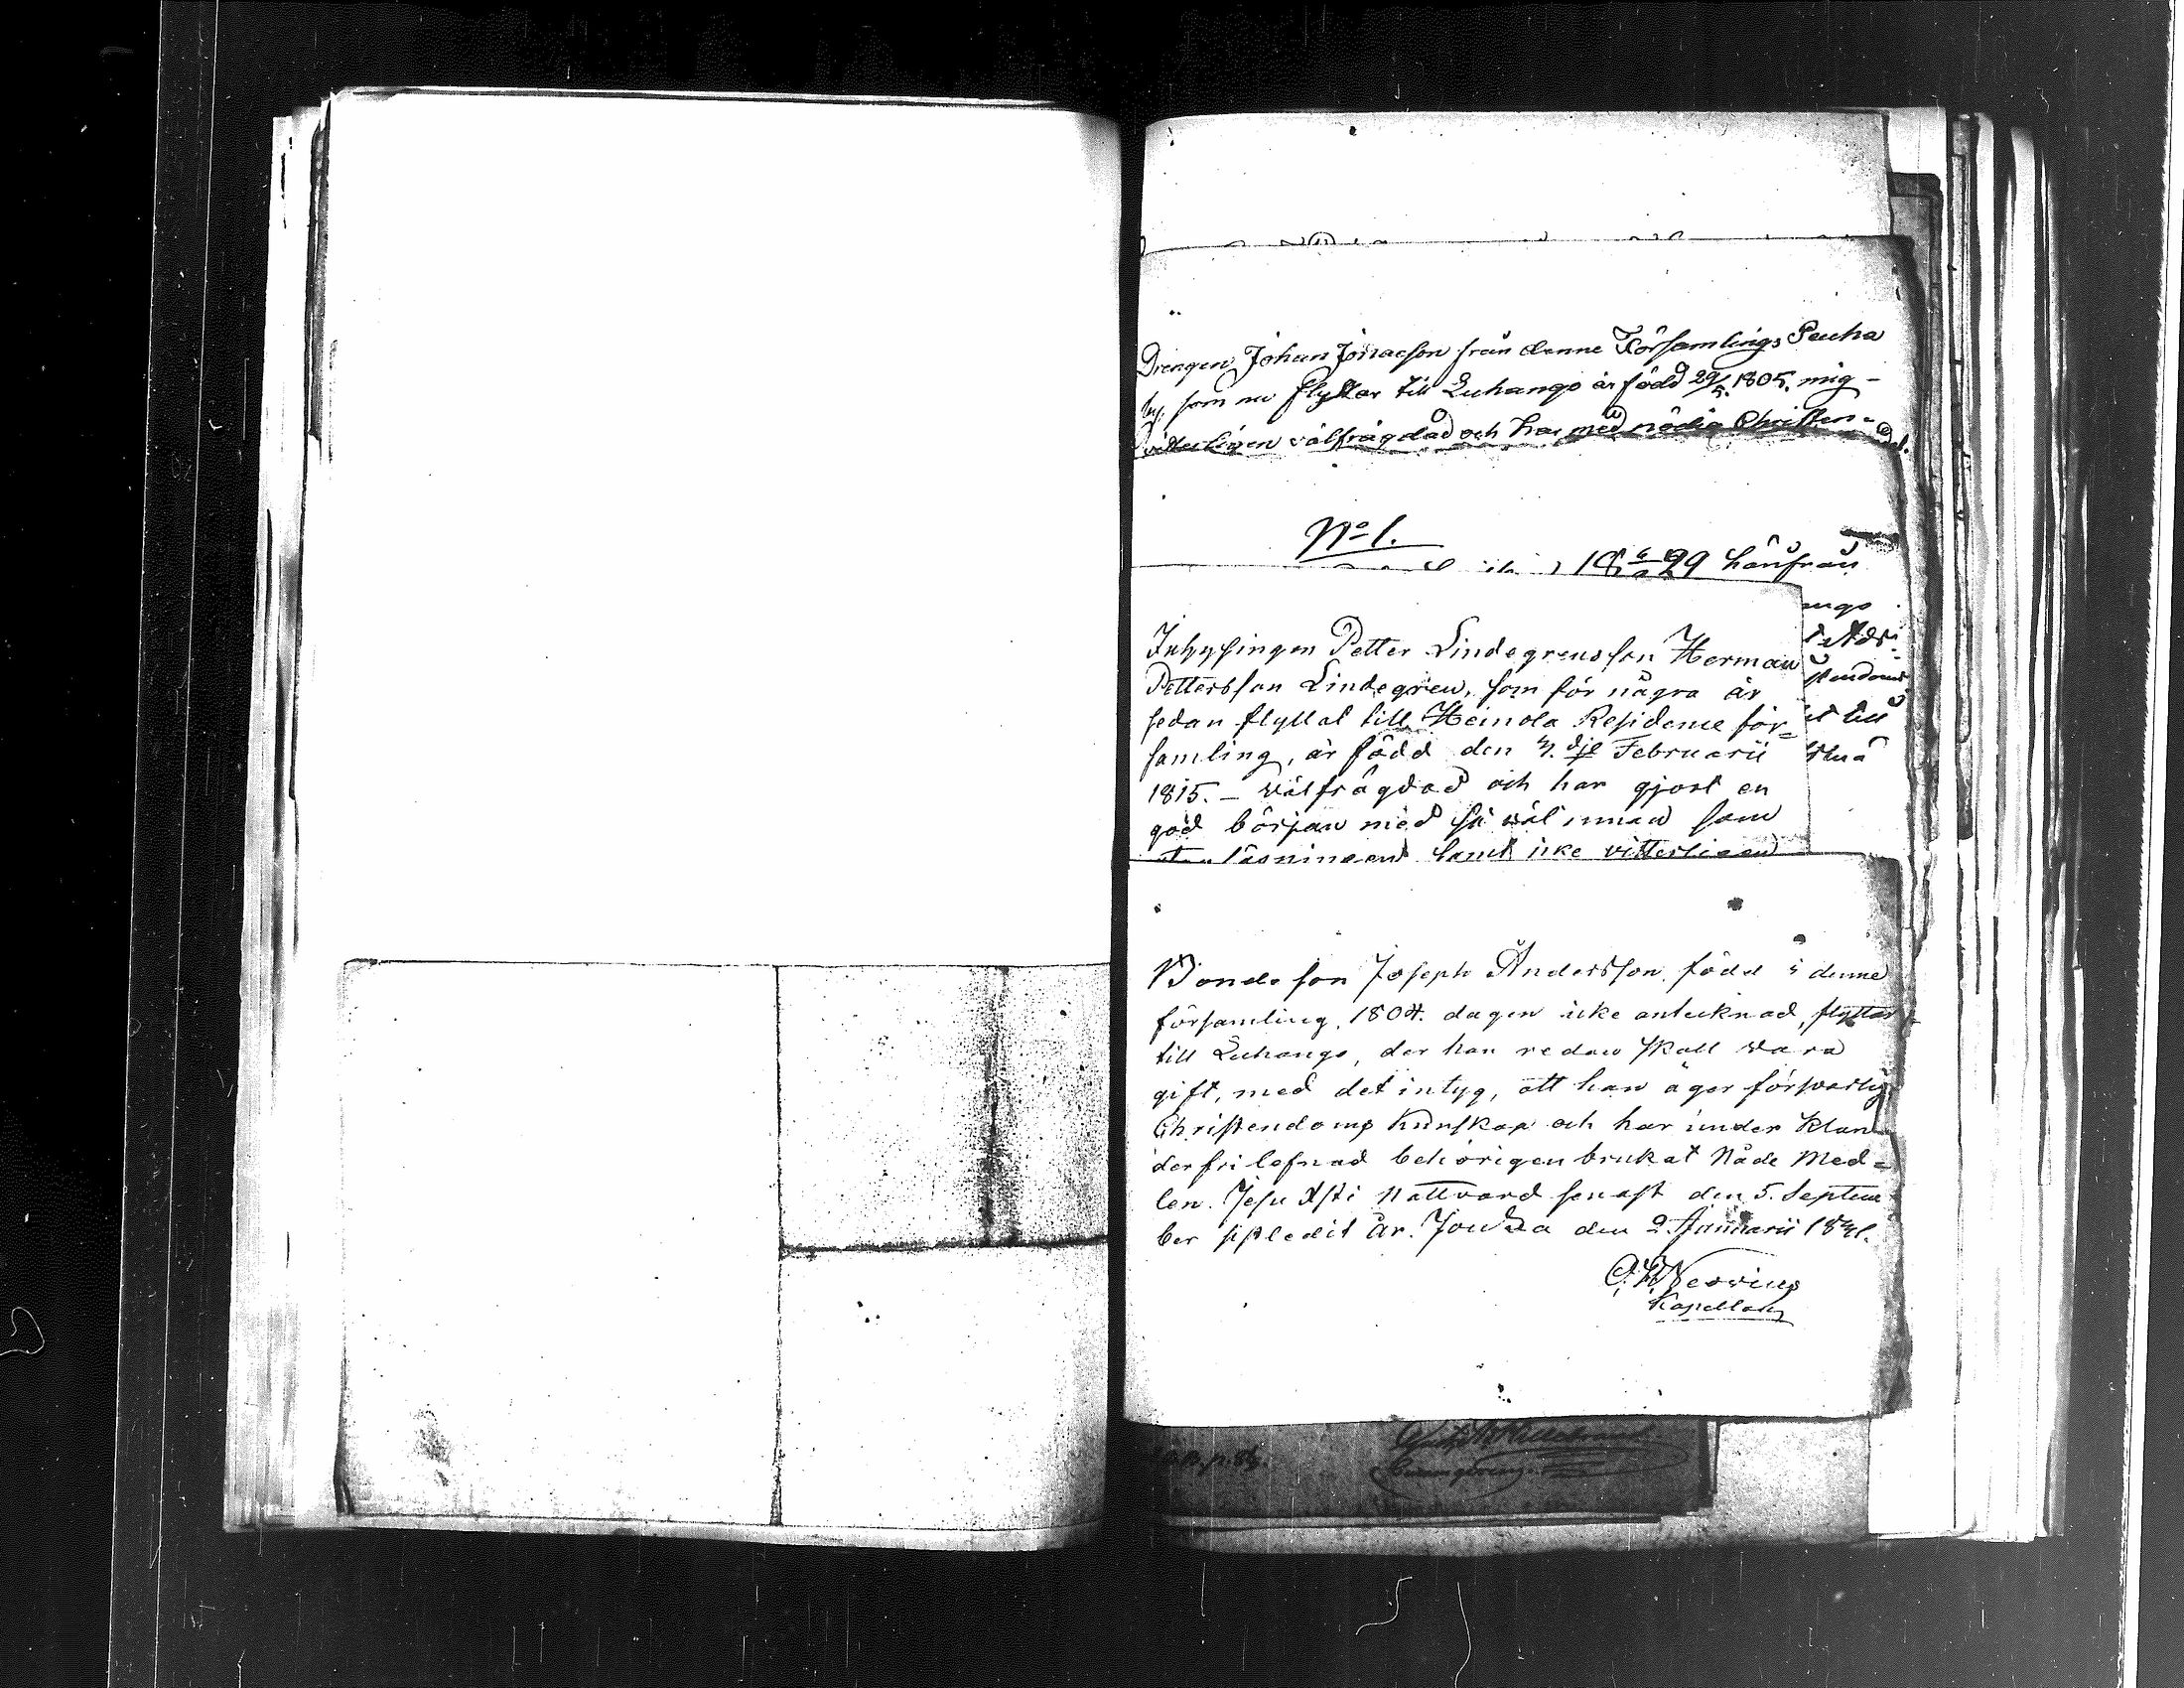 Drengen Johan Jönaeson från denne Församlings Pauha
by, som nu flyttar till Luhango är född 29/5. 1805. mig-
vitterligen välfrägdad och har med nödig Christen-
No 1.
1829 härifrån
ngo
stendoms
till
Inhysingen Petter Lindegrens son Herman
Pettersson Lindegren, som för några år
sedan flyttat till Heinola Residence för=
samling, är född den 3. dje Februarii
1815. – Välfrägdad och har gjort en
god början med så väl innan som
läsningen samt icke vitterligen
Bondeson Joseph Andersson, född i denne
församling, 1804. dagen icke antecknad, flyttar
till Luhango, der han redan skall vara
gift, med det intyg, att han äger försvarlig
Christendoms kunskap och har under klan
derfri lefnad behörigen brukat Nåde Med=
len. Jesu Xsti Nattvard senast den 5. Septem
ber sistledit år. Joutza den 2. Januarii 1841.
Kapellan